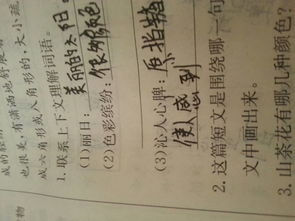 也很美,有潇洒地的很
成六角形或八角形的,大小疏
1. 联系上下文理解词语。
(1)丽日: 美丽的太阳.
(2)色彩缤纷: 很多颜色
(3)沁人心脾: 原指
使人感到
2. 这篇短文是围绕哪一句
文中画出来。
3. 山茶花有哪几种颜色?
物